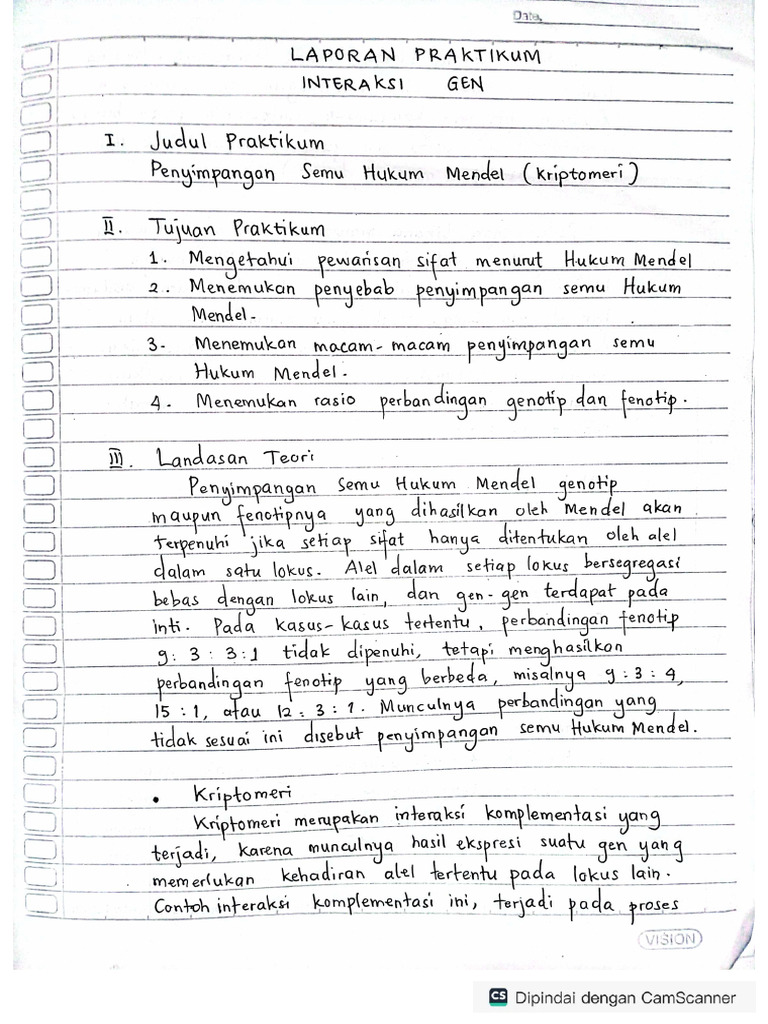 Date,
LAPORAN PRAKTIKUM
INTERAKSI GEN
I. Judul Praktikum
Penyimpangan Semu Hukum Mendel (Kriptomeri)
II. Tujuan Praktikum
1. Mengetahui pewarisan sifat menurut Hukum Mendel
2. Menemukan penyebab penyimpangan semu Hukum
Mendel.
3. Menemukan macam-macam penyimpangan semu
Hukum Mendel.
4. Menemukan rasio perbandingan genotip dan fenotip.
III. Landasan Teori
Penyimpangan Semu Hukum Mendel genotip
maupun fenotipnya yang dihasilkan oleh Mendel akan
terpenuhi jika setiap sifat hanya ditentukan oleh alel
dalam satu lokus. Alel dalam setiap lokus bersegregasi
bebas dengan lokus lain, dan gen-gen terdapat pada
inti. Pada kasus-kasus tertentu, perbandingan fenotip
9 : 3 : 3 : 1 tidak dipenuhi, tetapi menghasilkan
perbandingan fenotip yang berbeda, misalnya 9 : 3 : 4,
15 : 1, atau 12 : 3 : 1. Munculnya perbandingan yang
tidak sesuai ini disebut penyimpangan semu Hukum Mendel.
• Kriptomeri
Kriptomeri merupakan interaksi komplementasi yang
terjadi, karena munculnya hasil ekspresi suatu gen yang
memerlukan kehadiran alel tertentu pada lokus lain.
Contoh interaksi komplementasi ini, terjadi pada proses
VISION
CS Dipindai dengan CamScanner